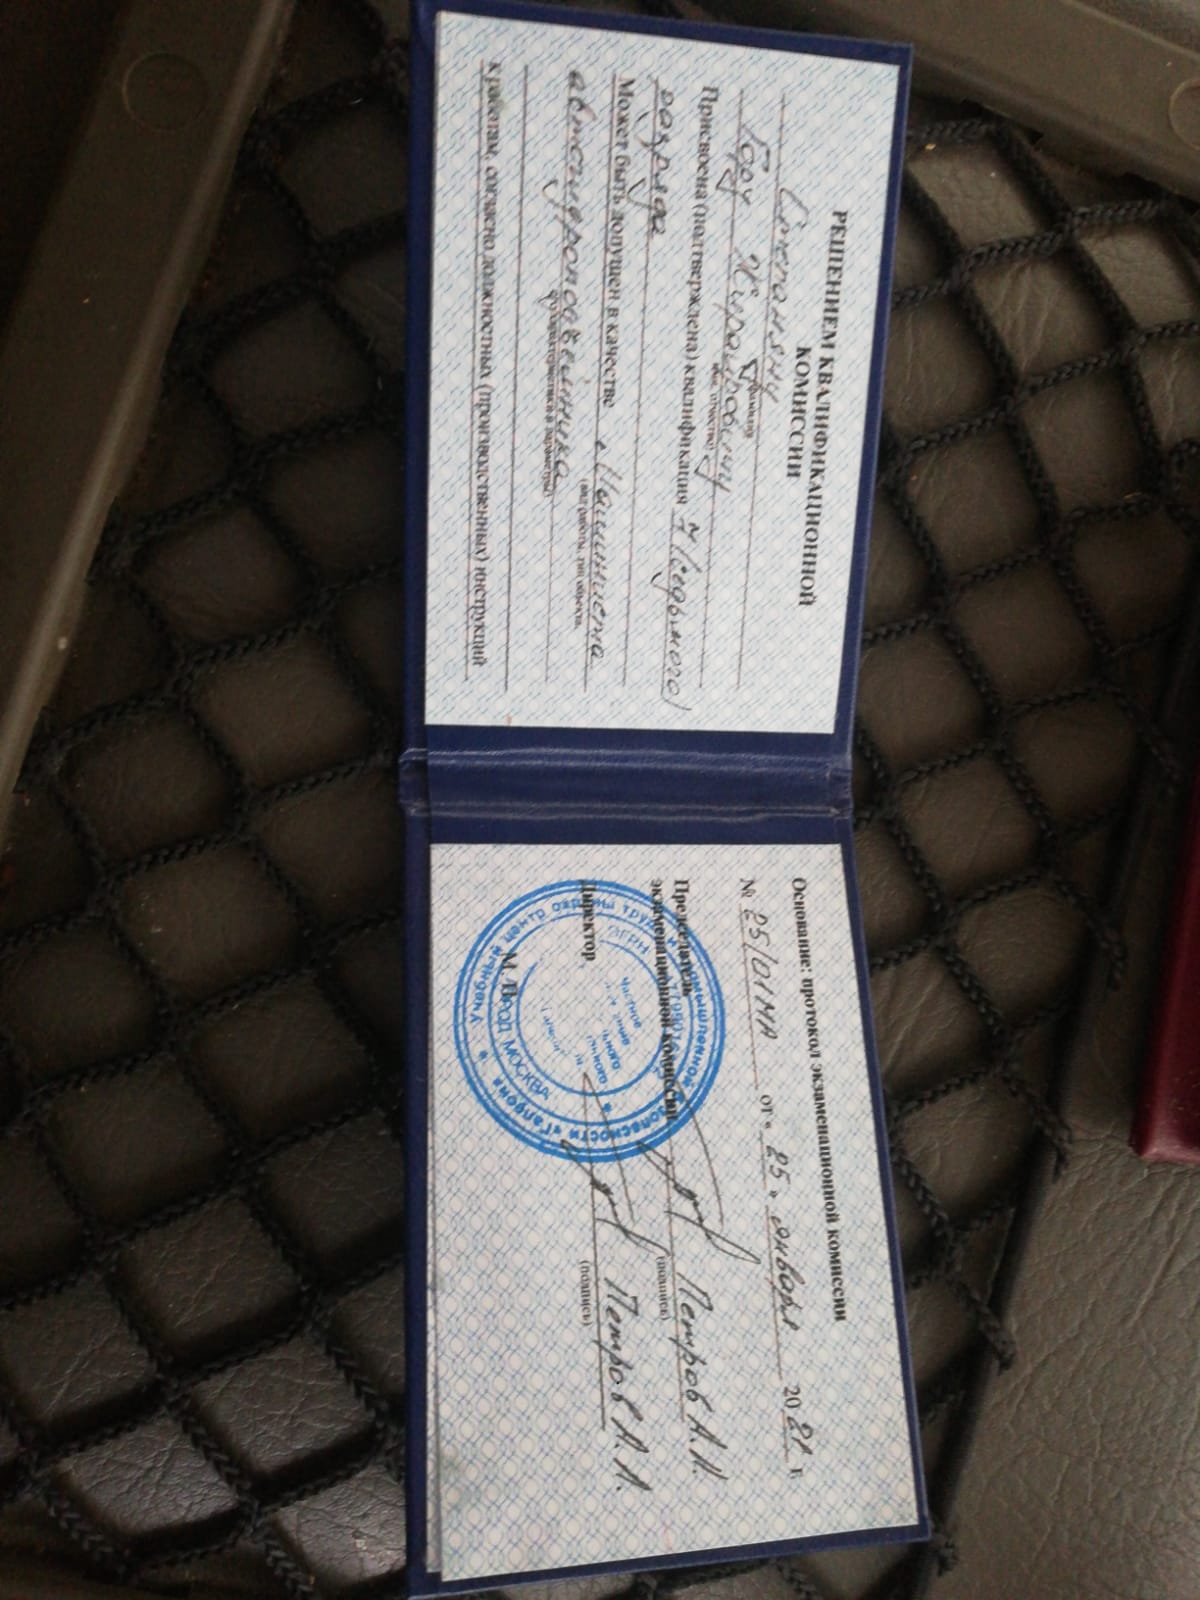 РЕШЕНИЕМ КВАЛИФИКАЦИОННОЙ
КОМИССИИ
Степаняну
фамилия
Гору Жирайровичу
имя, отчество
Присвоена (подтверждена) квалификация 7 (седьмого)
разряда
Может быть допущен в качестве Машиниста
(вид работы, тип объекта,
автогидроподъёмника
его характеристики и параметры)
к работам, согласно должностных (производственных) инструкций
Основание: протокол экзаменационной комиссии
№ 25/01МА от « 25 » января 20 21 г.
Председатель
экзаменационной комиссии Петров А.А.
(подпись)
Директор Петров А.А.
(подпись)
М.П.
центр охраны труда промышленной безопасности «Гардона»
ОГРН
Частное
город МОСКВА